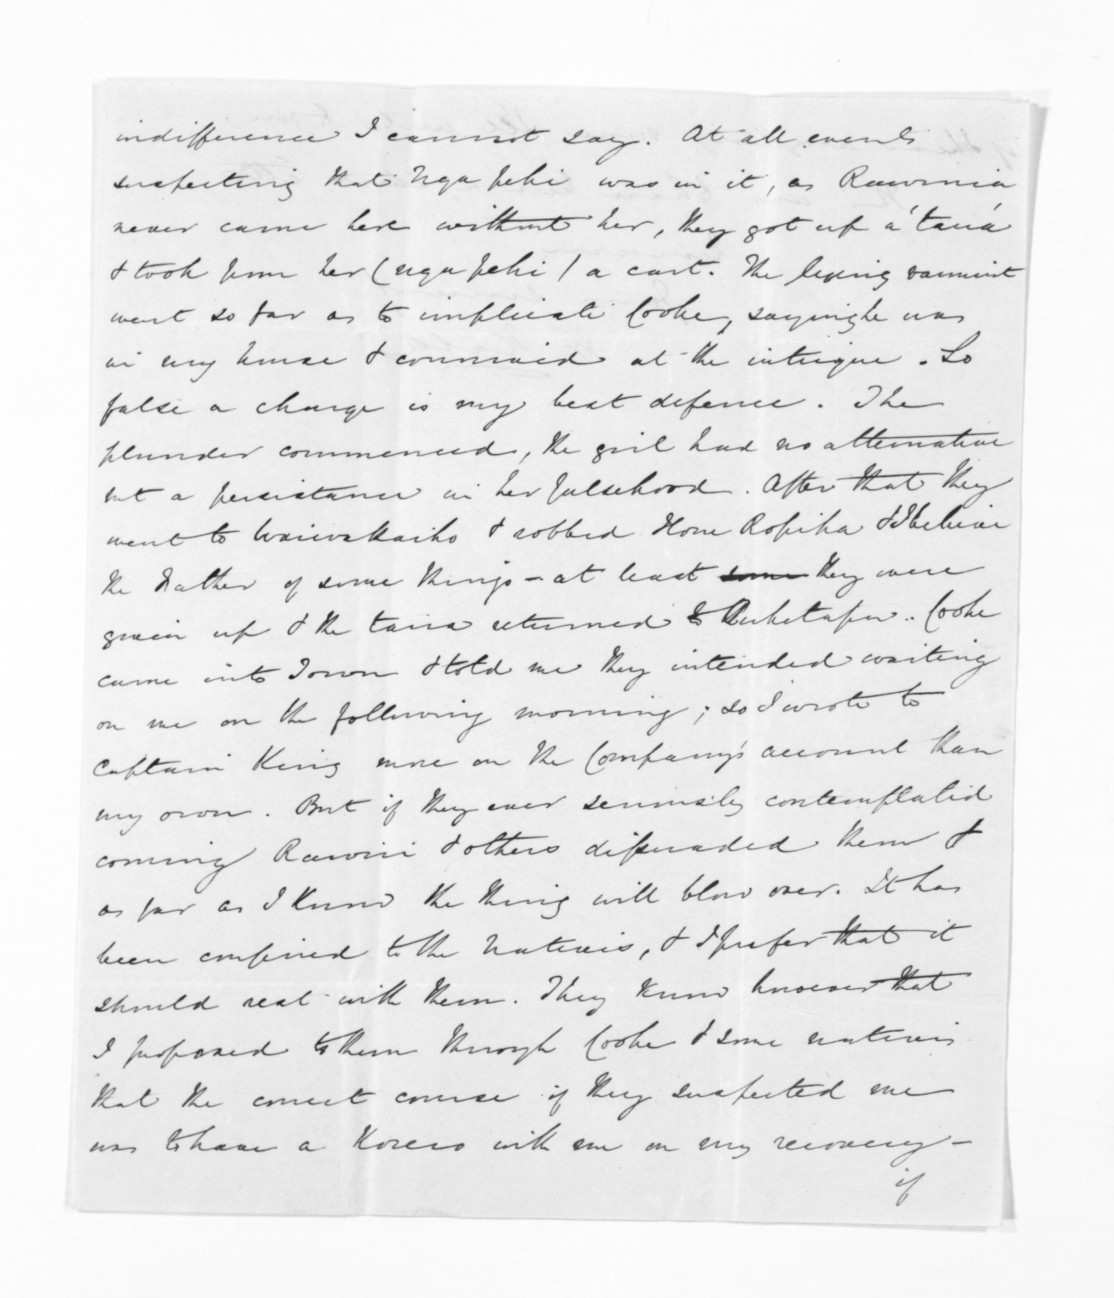 indifference I cannot say. At all events
suspecting that Nga peki was in it, as Rawinia
never came here without her, they got up a 'taua'
& took from her (Nga peki) a cart. The lying varmint
went so far as to implicate Cooke, saying he was
in my house & connived at the intrigue. So
false a charge is my best defence. The
plunder commenced, the girl had no alternative
but a persistance in her falsehood. After that they
went to Waiwakaiho & robbed Hone Ropiha & I believe
the Father of some things – at least some they were
given up & the taua returned to Puketapu. Cooke
came into Town & told me they intended waiting
on me on the following morning; so I wrote to
Captain King more on the Company's account than
my own. But if they ever seriously contemplated
coming Rawiri & others dissuaded them &
as far as I know the thing will blow over. It has
been confined to the natives, & I prefer that it
should rest with them. They know however that
I proposed to them through Cooke & some natives
that the correct course if they suspected me
was to have a Korero with me on my recovery –
if